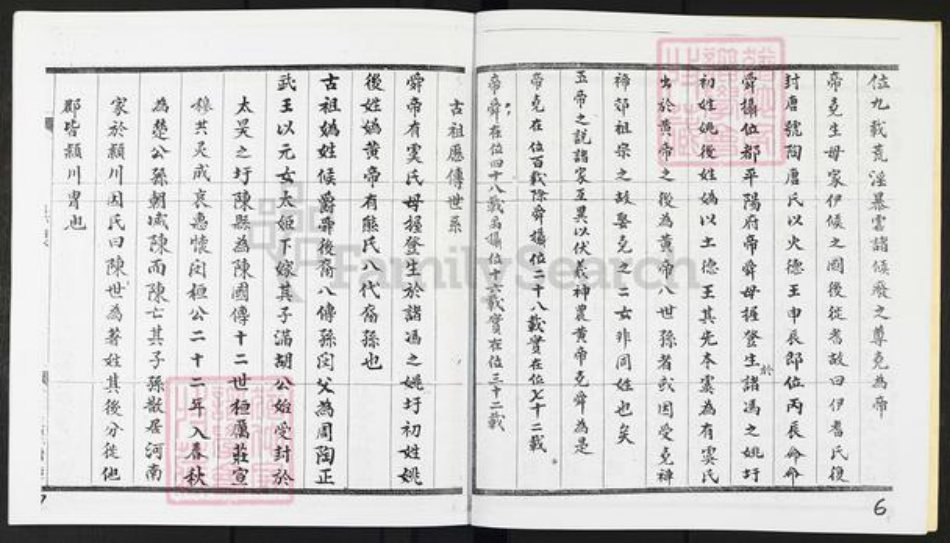 位九載荒淫暴雲諸候廢之尊堯為帝
帝堯生母家伊候之國後從耆故曰伊耆氏復
封唐號陶唐氏以火德王申辰即位丙辰命命
舜攝位都平陽府帝舜母握登生於諸馮之姚圩
初姓姚後姓媯以土德王其先本虞為有虞氏
出於黄帝之後為黄帝八世孫者或因受堯禅
禘郊祖宗之故娶堯之二女非同姓也矣
五帝之説諸家互異以伏羲神農黄帝堯舜為是
帝堯在位百載除舜攝位二十八載實在位七十二載
帝舜在位四十八載禹攝位十六載實在位三十二載
6
古祖歷傳世系
舜帝有虞氏母握登生於諸馮之姚圩初姓姚
後姓媯黄帝有熊氏八代裔孫也
古祖媯姓候爵舜後裔八傳孫閼父為周陶正
武王以元女太姬下嫁其子滿胡公始受封於
太昊之圩陳縣為陳國傳十二世桓厲莊宣
穆共灵成哀惠懷閔桓公二十二年入春秋
為楚公孫朝滅陳而陳亡其子孫散居河南
家於潁川因氏曰陳世為著姓其後分徙他
郡皆潁川胄也
7
FamilySearch